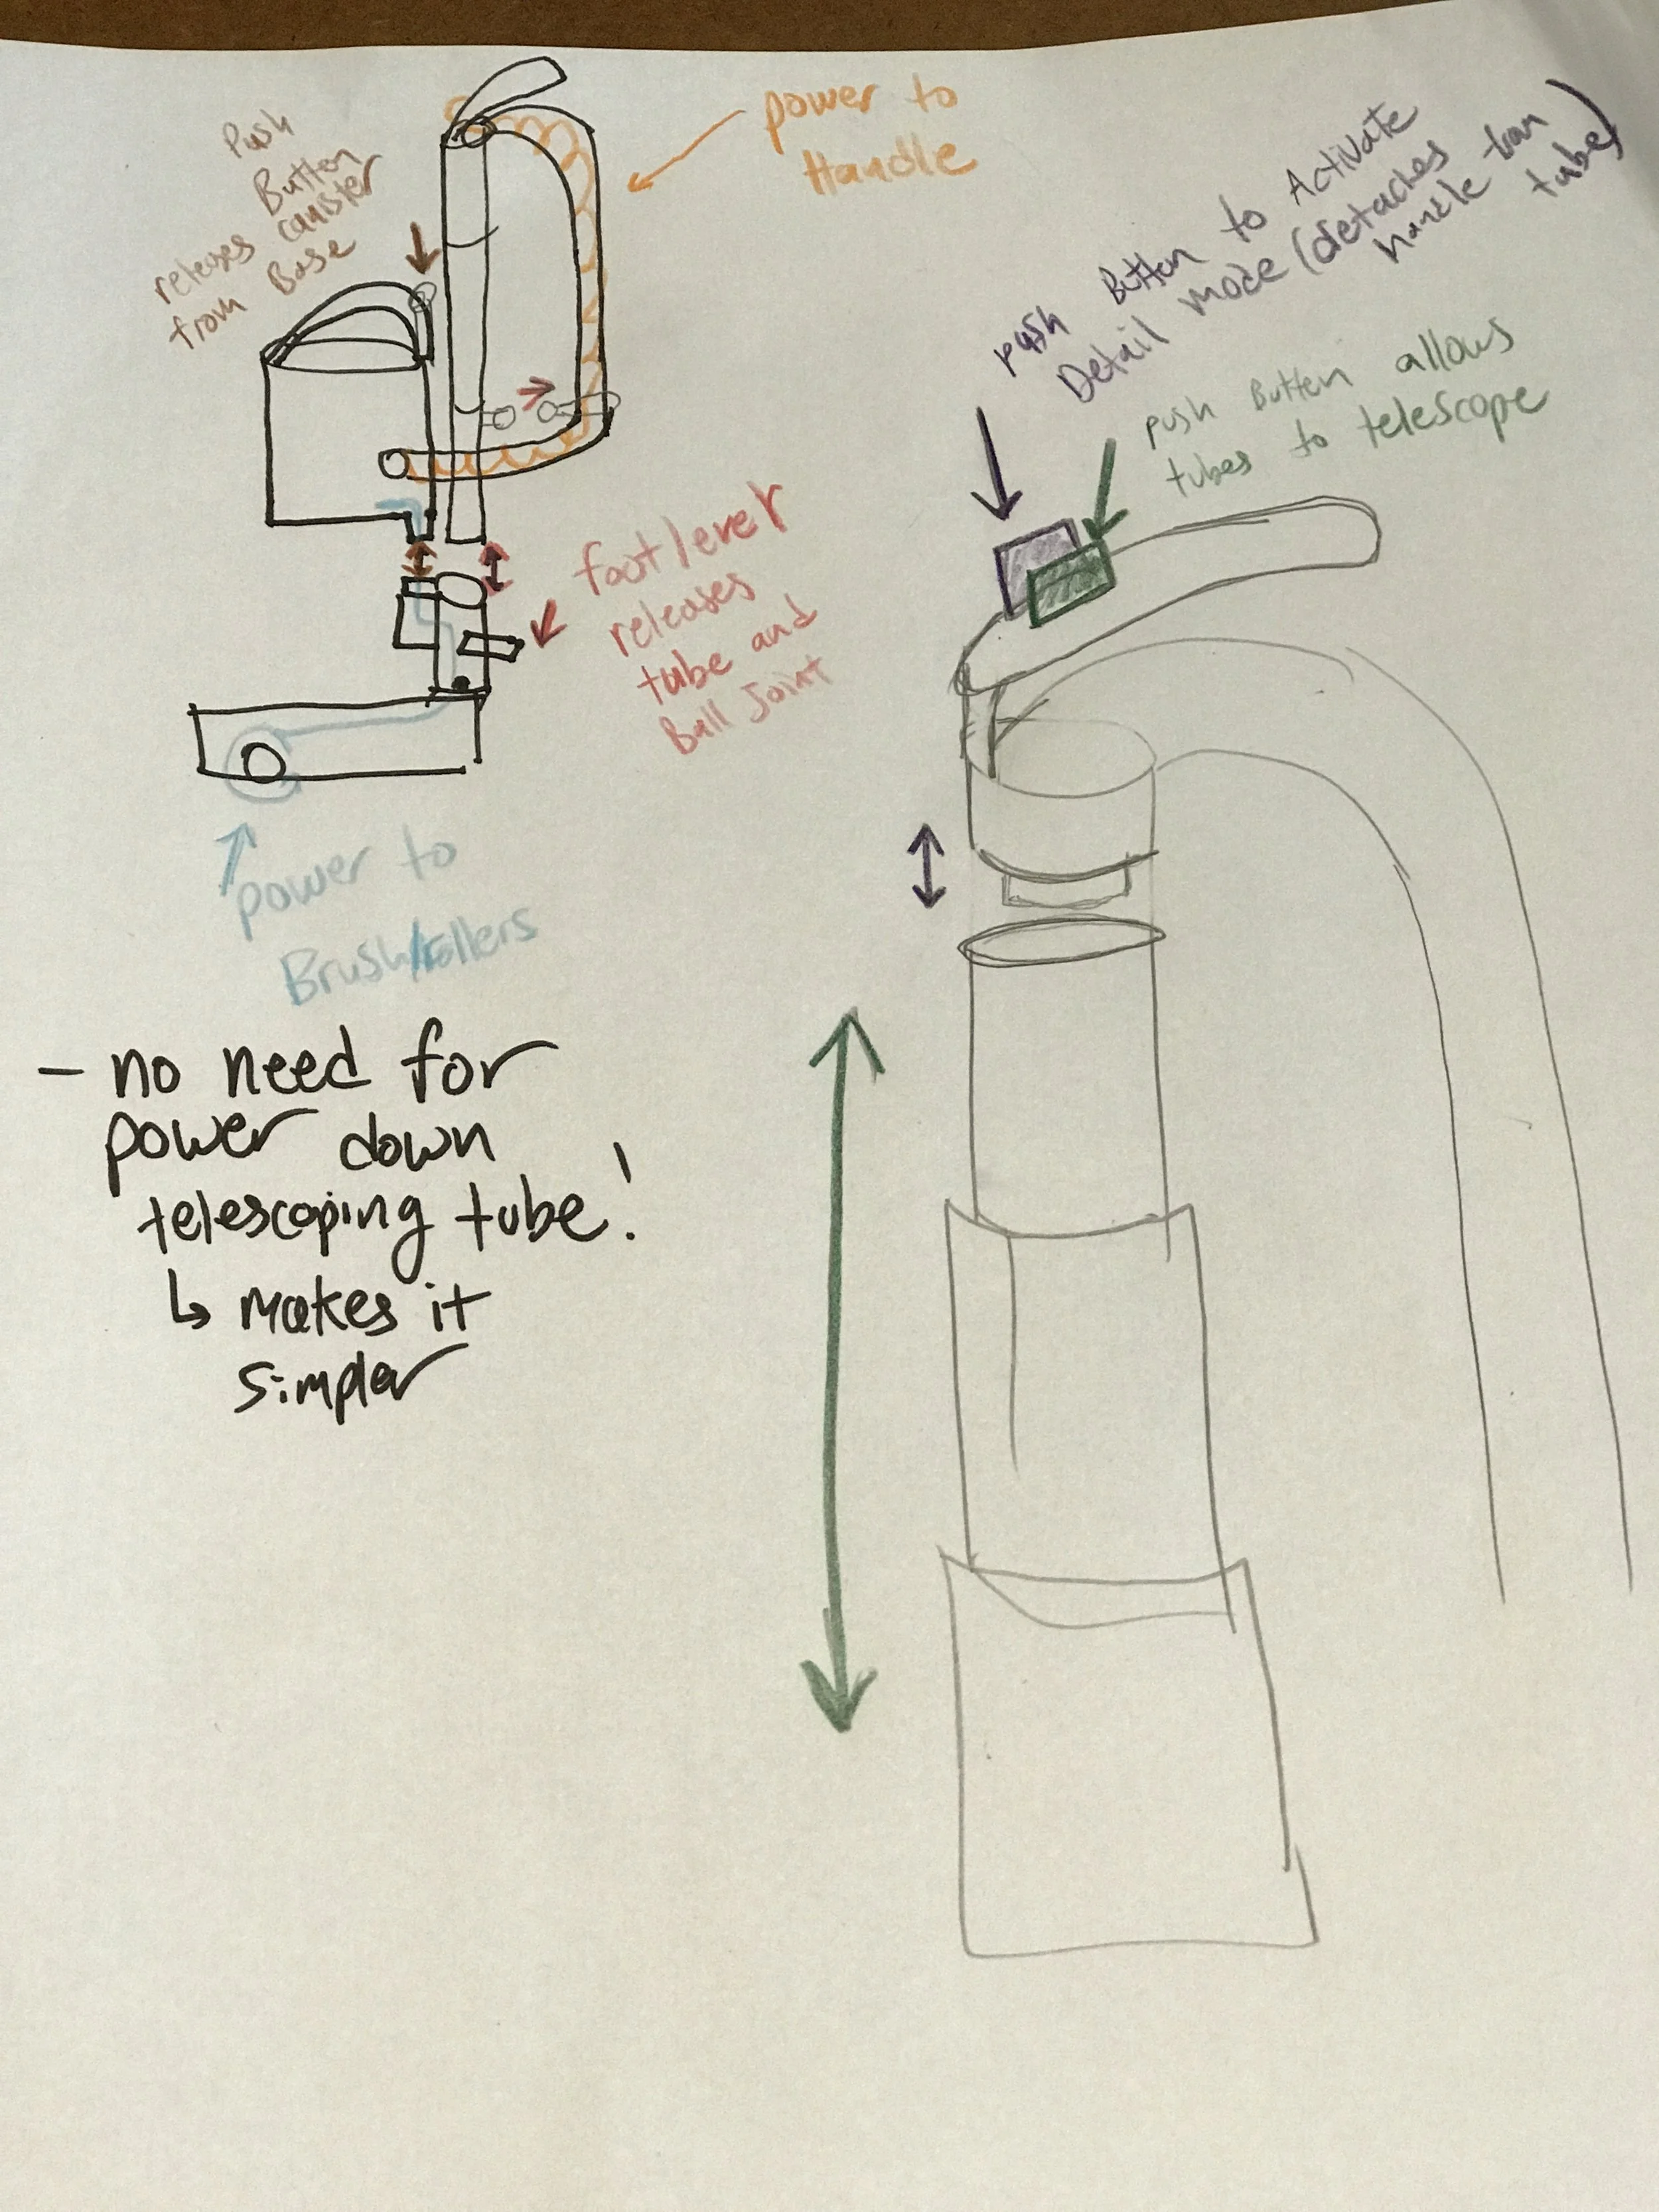 Push
Button
releases canister
from Base
power to
Handle
push Button to Activate
Detail mode (detaches
handle from
tube)
push Button allows
tubes to telescope
foot lever
releases
tube and
Ball Joint
power to
Brush/rollers
- no need for
power down
telescoping tube!
↳ makes it
simpler